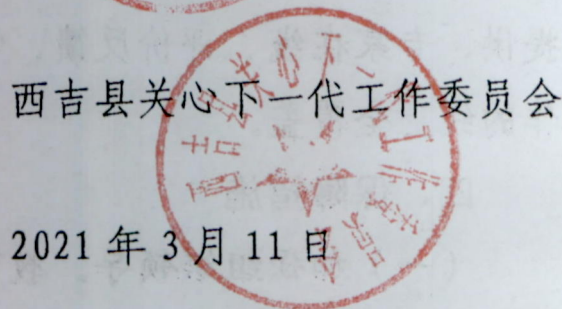 西吉县关心下一代工作委员会
2021年3月11日